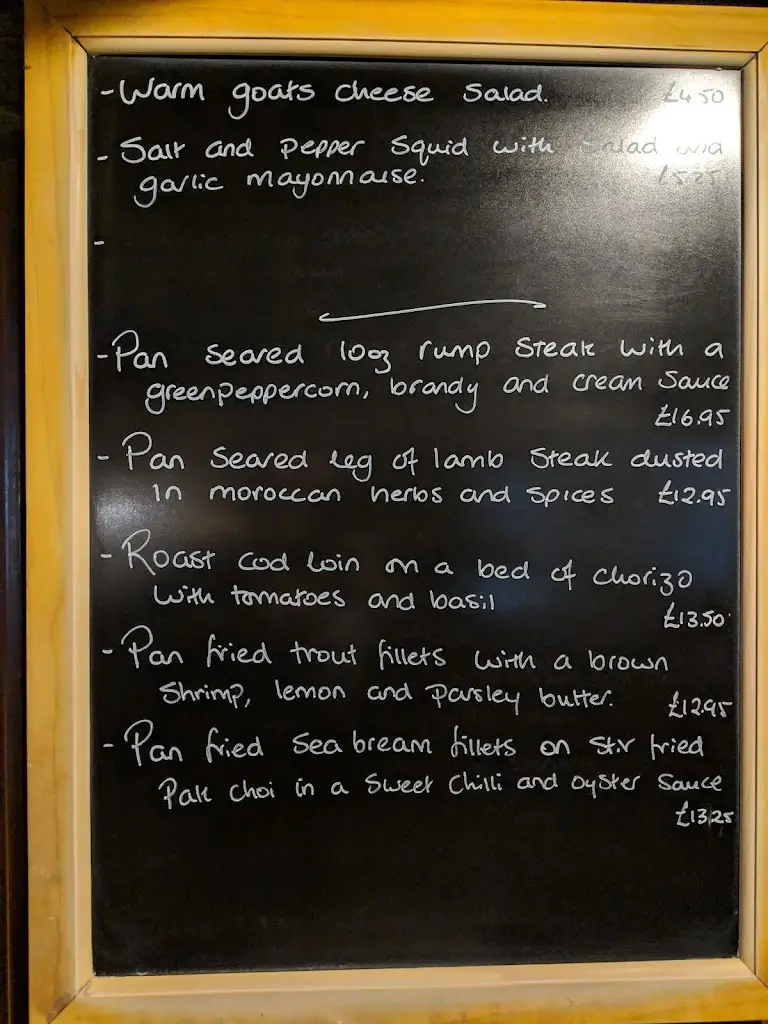 - Warm goats cheese Salad. £4.50
- Salt and pepper Squid with Salad and
garlic mayonnaise. £5.25
-
- Pan Seared 10oz rump Steak with a
greenpeppercorn, brandy and cream Sauce
£16.95
- Pan Seared leg of lamb Steak dusted
in moroccan herbs and spices £12.95
- Roast cod loin on a bed of chorizo
with tomatoes and basil
£13.50
- Pan fried trout fillets with a brown
Shrimp, lemon and parsley butter. £12.95
- Pan fried Sea bream fillets on stir fried
Pak choi in a Sweet Chilli and oyster Sauce
£13.25